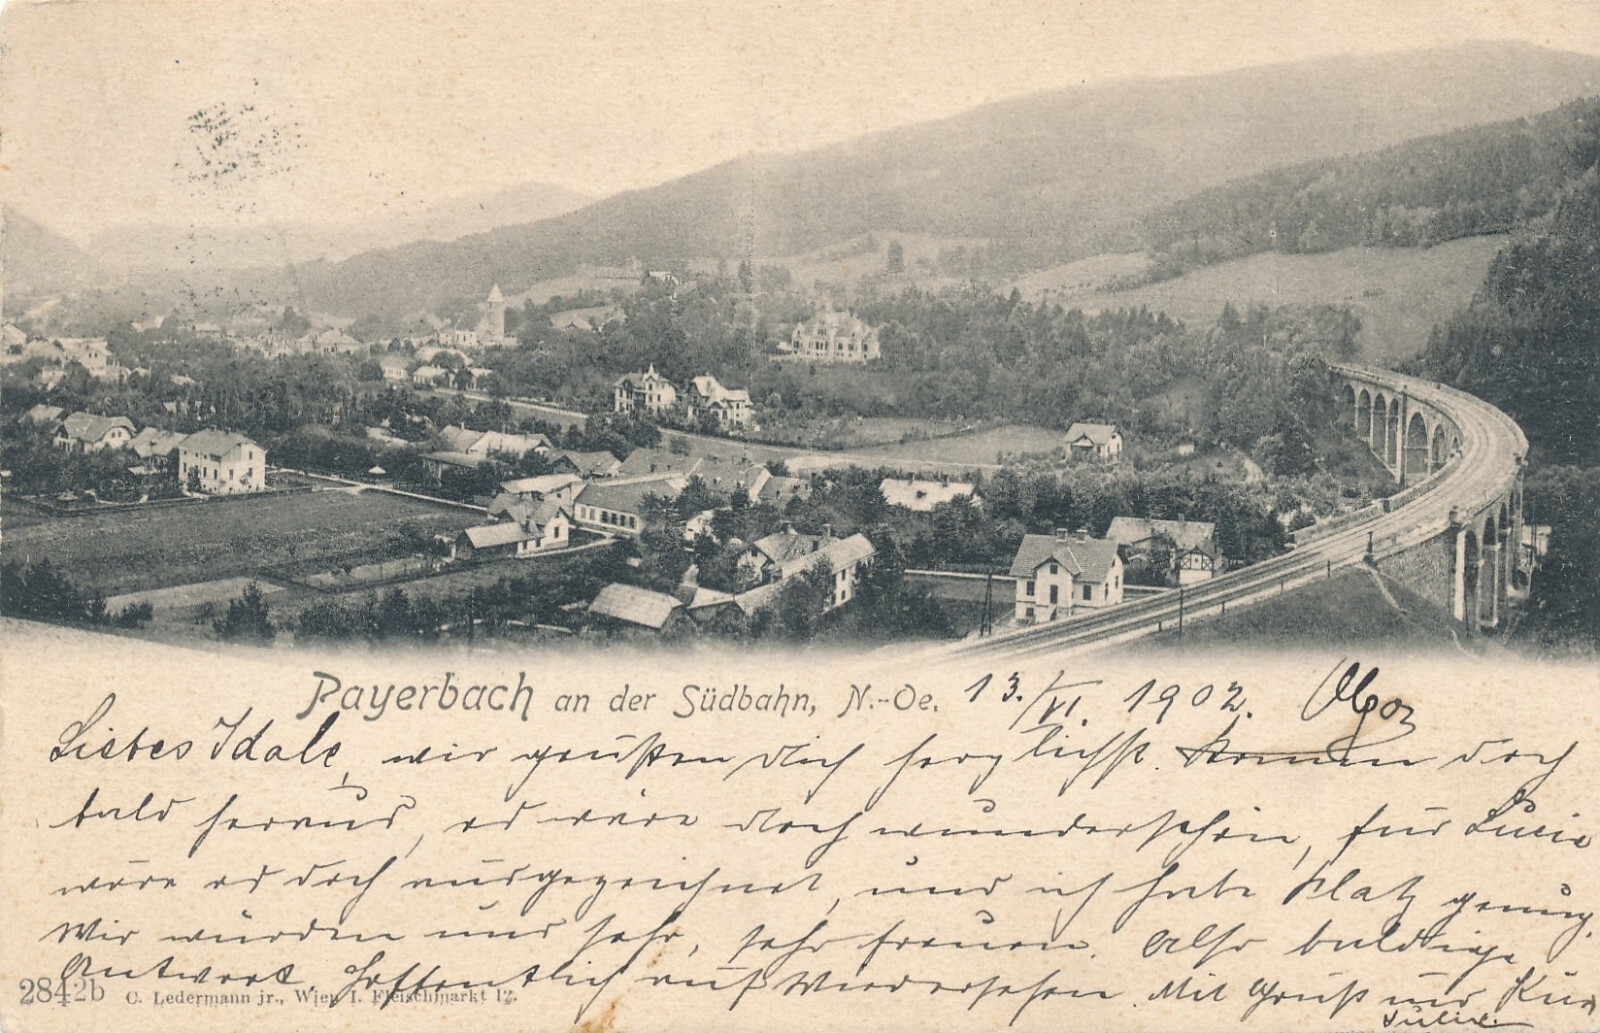 Payerbach an der Südbahn, N.-Oe. 13./VI. 1902. Olga
Liebes Idale, wir grüßen dich herzlichst. Kommen doch
bald heraus, es wäre doch wunderschön, für Lucie
wäre es doch ausgezeichnet, und ich habe Platz genug.
Wir würden uns sehr, sehr freuen. Also baldige
Antwort. Hoffentlich auf Wiedersehen. Mit Gruß und Kuss
Julie.
2842b C. Ledermann jr., Wien I. Fleischmarkt 12.